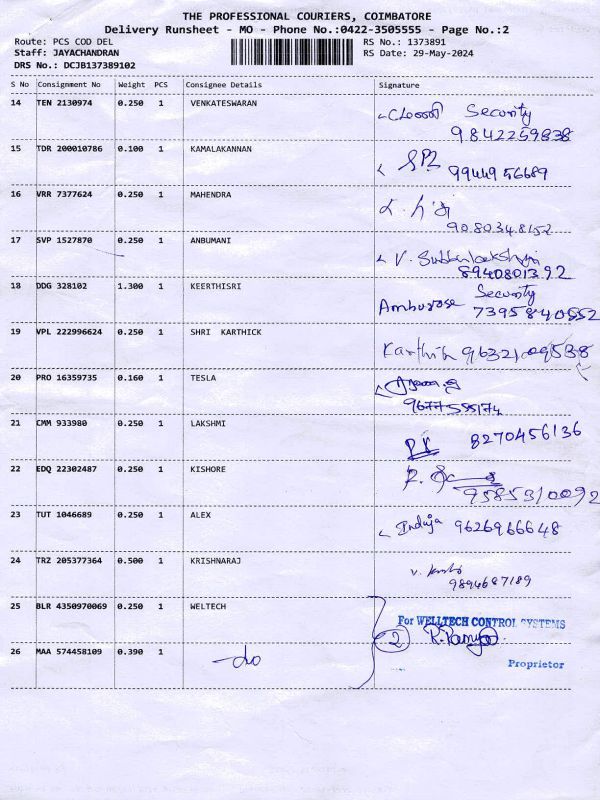 THE PROFESSIONAL COURIERS, COIMBATORE
Delivery Runsheet - MO - Phone No.:0422-3505555 - Page No.:2
Route: PCS COD DEL RS No.: 1373891
Staff: JAYACHANDRAN RS Date: 29-May-2024
DRS No.: DCJB137389102
S No Consignment No Weight PCS Consignee Details Signature
14 TEN 2130974 0.250 1 VENKATESWARAN
Security
9842259838
15 TDR 200010786 0.100 1 KAMALAKANNAN
9944956689
16 VRR 7377624 0.250 1 MAHENDRA
9080348152
17 SVP 1527870 0.250 1 ANBUMANI V. Subbulakshmi
8940801392
18 DDG 328102 1.300 1 KEERTHISRI Security
Amburose 7395840552
19 VPL 222996624 0.250 1 SHRI KARTHICK
Karthik 9632109538
20 PRO 16359735 0.160 1 TESLA
9677555174
21 CMM 933980 0.250 1 LAKSHMI
8270456136
22 EDQ 22302487 0.250 1 KISHORE
9585310092
23 TUT 1046689 0.250 1 ALEX Induja 9626966648
24 TRZ 205377364 0.500 1 KRISHNARAJ
9894687189
25 BLR 4350970069 0.250 1 WELTECH
For WELLTECH CONTROL SYSTEMS
2 R. Ramya
26 MAA 574458109 0.390 1 -do
Proprietor